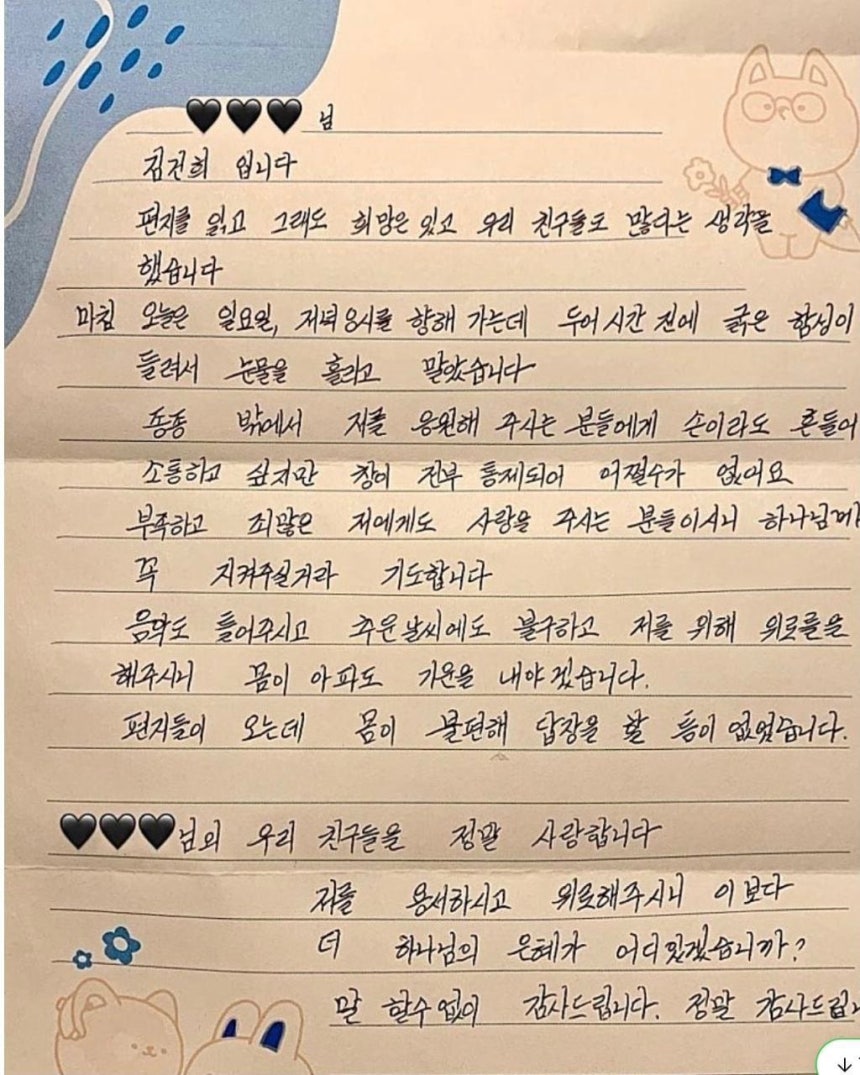 🖤🖤🖤 님
김건희 입니다
편지를 읽고 그래도 희망은 있고 우리 친구들도 많다는 생각을
했습니다
마침 오늘은 일요일, 저녁8시를 향해 가는데 두어 시간 전에 굵은 함성이
들려서 눈물을 흘리고 말았습니다
종종 밖에서 저를 응원해 주시는 분들에게 손이라도 흔들어
소통하고 싶지만 창이 전부 통제되어 어쩔수가 없어요
부족하고 죄많은 저에게도 사랑을 주시는 분들이시니 하나님께
꼭 지켜주실거라 기도합니다
음악도 틀어주시고 추운날씨에도 불구하고 저를 위해 위로를을
해주시니 몸이 아파도 기운을 내야겠습니다.
편지들이 오는데 몸이 불편해 답장을 할 틈이 없었습니다.
🖤🖤🖤님의 우리 친구들을 정말 사랑합니다
저를 용서하시고 위로해주시니 이보다
더 하나님의 은혜가 어디있겠습니까?
말 할수없이 감사드립니다. 정말 감사드립니